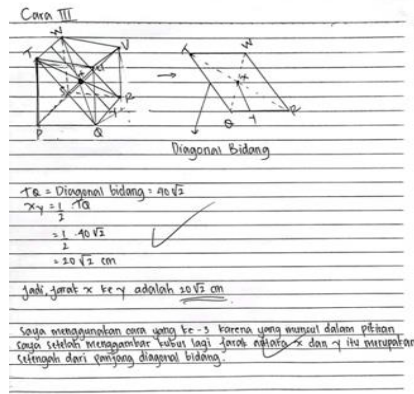 Cara III
W
T
V
U
X
S
R
Y
P
Q
T
W
X
Q
Y
R
Diagonal Bidang
TQ = Diagonal bidang = 40√2
XY = 1/2 TQ
= 1/2 . 40√2
= 20√2 cm
Jadi, jarak x ke y adalah 20√2 cm
Saya menggunakan cara yang ke-3 karena yang muncul dalam pikiran
saya setelah menggambar kubus lagi jarak antara x dan y itu merupakan
setengah dari panjang diagonal bidang.